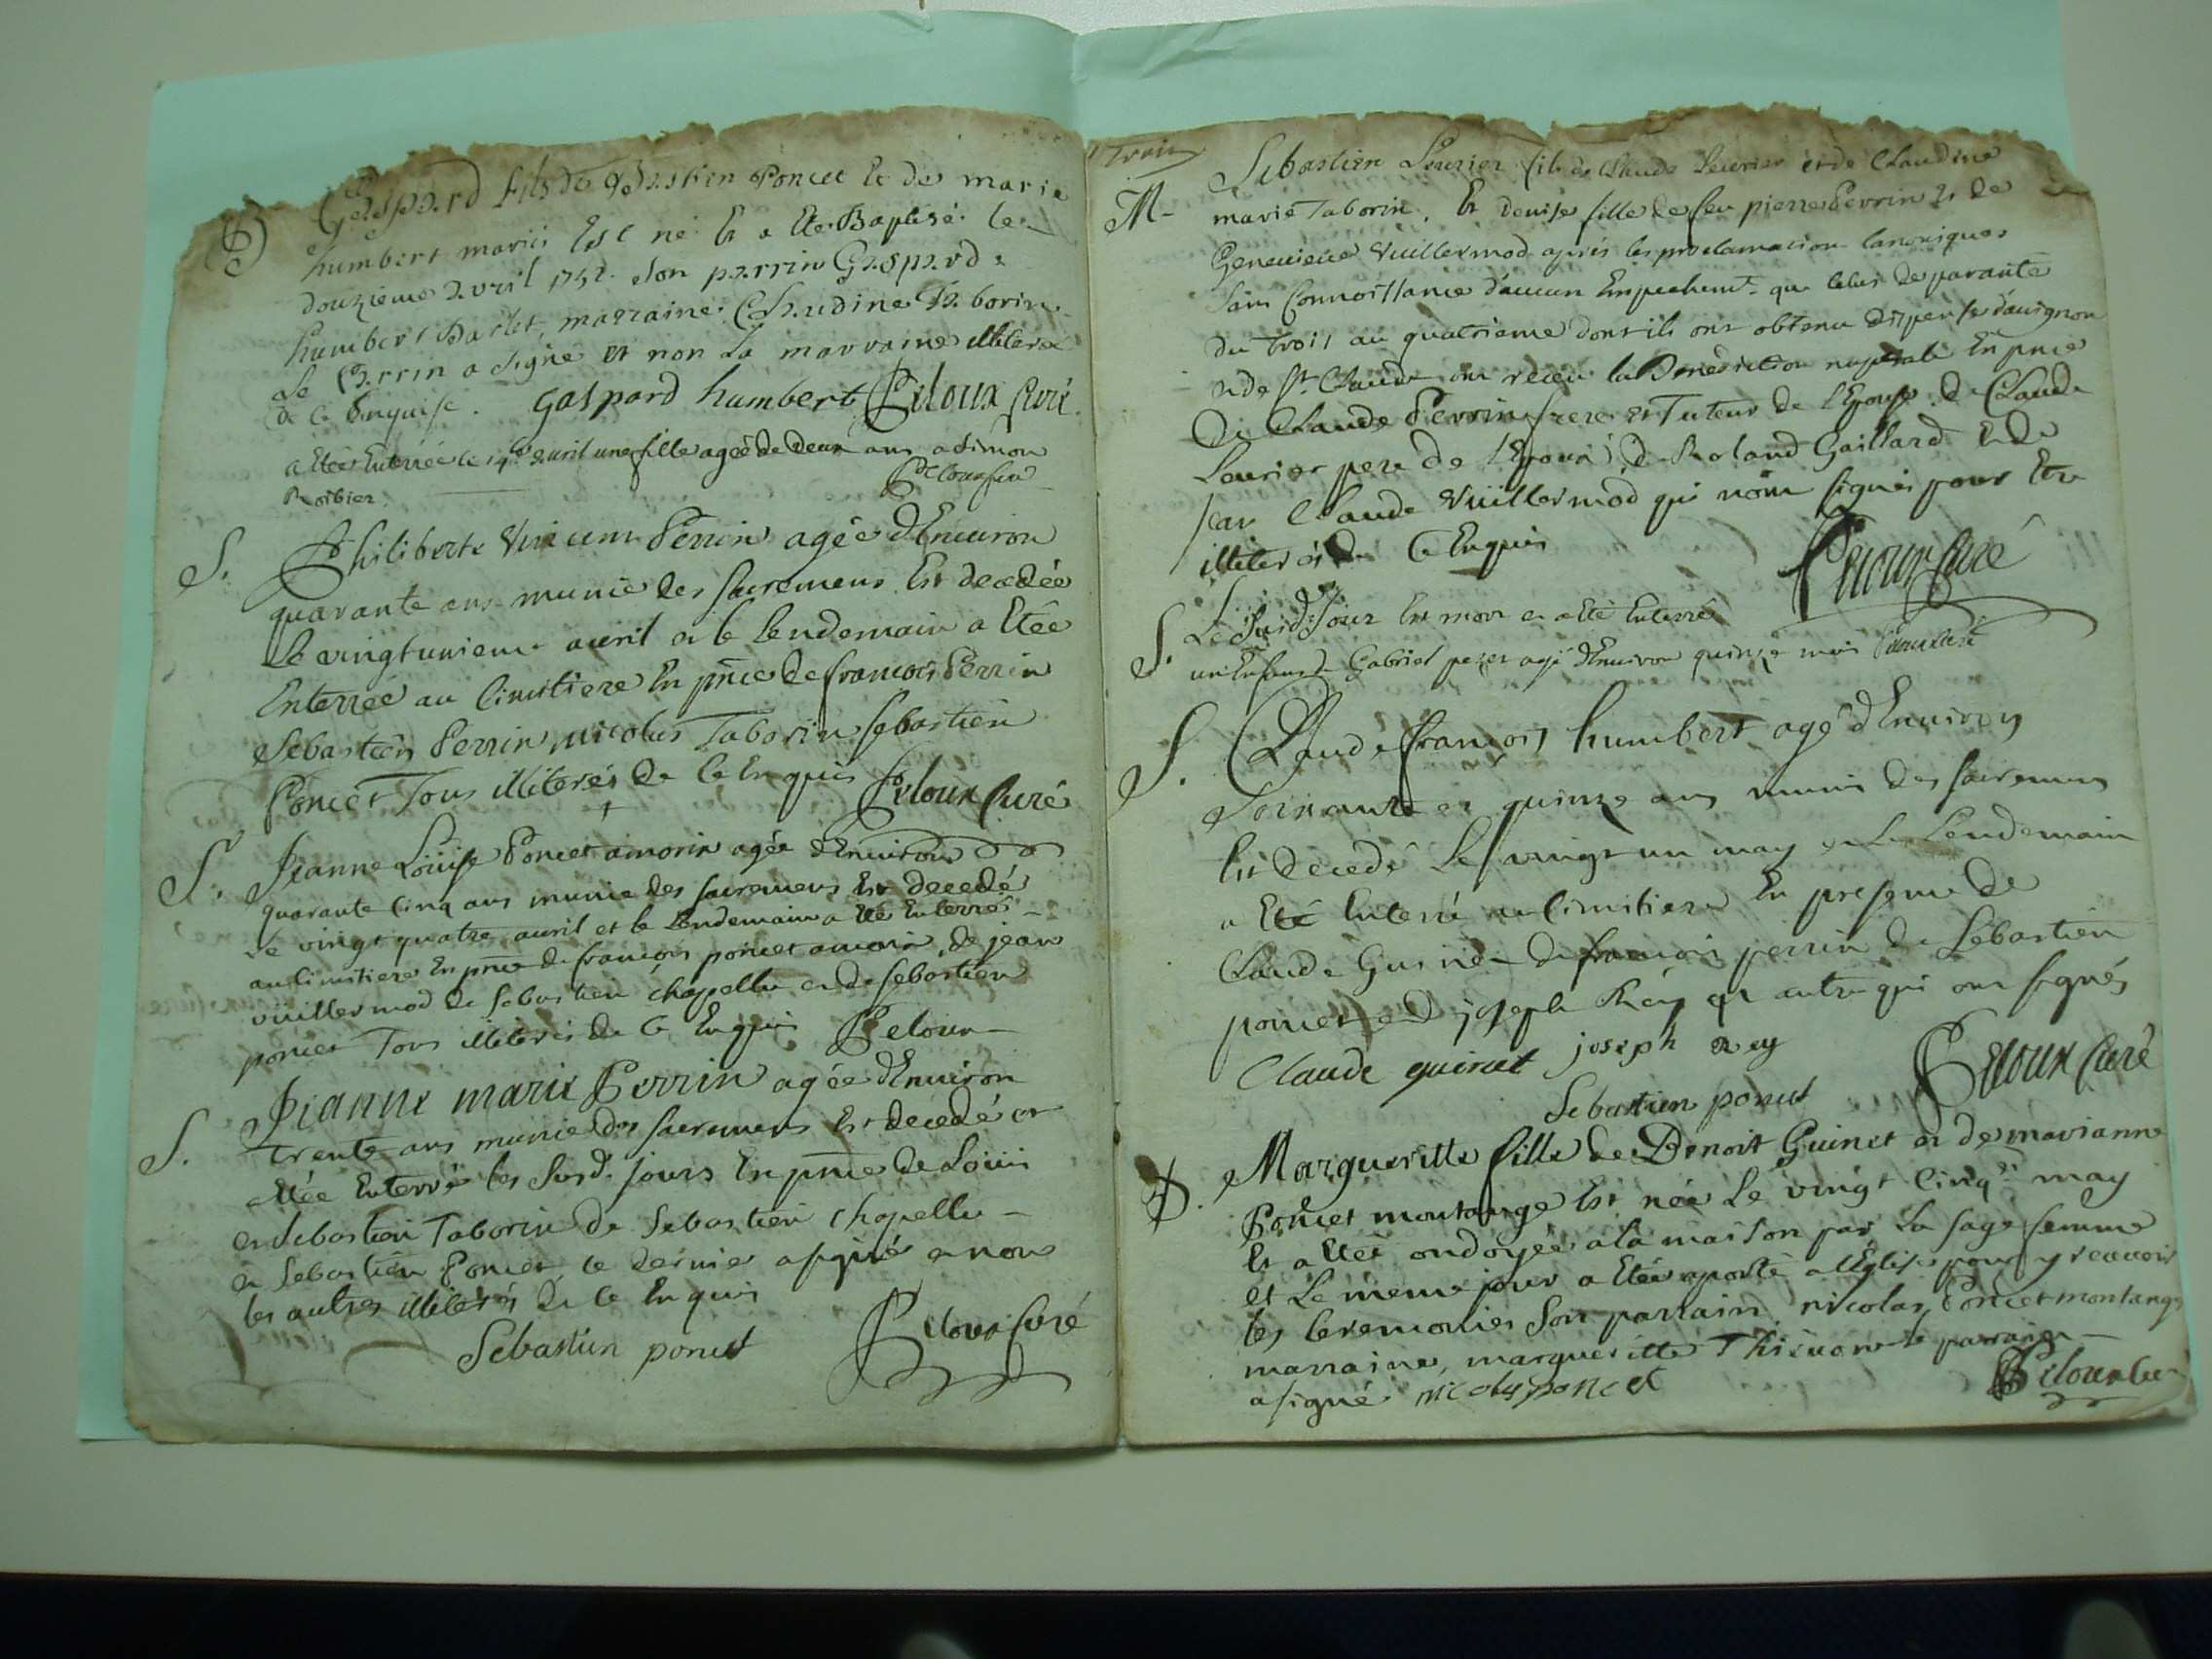 B
Gaspard fils de Sebastien Poncet Et de marie
humbert mariés Est né Et a Eté Baptisé le
douzieme avril 175 Son parrin Gaspard
humbert marraine Claudine Taborin
Le Parrin a signé et non La marraine illiterée
de ce Enquise. gaspard humbert Peloux Curé
a Etée Enterrée le avril une fille agée de Deux ans a Simon
Peloux Curé
S. Philiberte Vincent Perrin agée d'Environ
quarante ans munie des sacremens Est decedée
Le vingtunieme avril et le Lendemain a Etée
Enterrée au Cimitiere En pnce de françois Perrin
Sebastien Perrin nicolas Taborin sebastien
Poncet Tous illiterés de ce Enquis Peloux Curé
S. Jeanne Loüise Poncet amorin agée d'Environ
quarante Cinq ans munie des sacremens Est decedé
Le vingt quatre avril et le Lendemain a Eté Enterrée
au Cimitiere En pnce de françois poncet amorin de jean
vuillermod de Sebastien chapellu et de Sebastien
poncet Tous illiterés de ce Enquis Peloux
S. Jeanne marie Perrin agée d'Environ
trente ans munie des sacremens Est decedé et
Etée Enterré les Susd. jours En pnce de Loüis
et Sebastien Taborin de Sebastien chapellu
et Sebastien Poncet le dernier a signé et non
les autres illiterés de ce Enquis
Sebastien poncet Peloux Curé
Trois
Sebastien Levrier fils de Claude Levrier et de Claudine
M- marie Taborin, Et denise fille de feu pierre Perrin Et de
Genevieve Vuillermod après les proclamation Canoniques
sans Connoissance d'aucun Empechemt que Celui de paranté
du trois au quatrieme dont ils ont obtenu dispense d'avignon
et de St Claude ont reçu la Benediction nuptiale En pnce
De Claude Perrin frere et Tuteur de l'Epouse de Claude
Levrier pere de l'Epoux de Roland Gaillard Et de
jean Claude Vuillermod qui n'ont signés pour Etre
illiterés de ce Enquis Peloux Curé
S. Le Susd. Jour Est mort et a Eté Enterré
un Enfant de Gabriel agé d'Environ quinze mois Peloux Curé
S. Claude françois humbert agé d'Environ
Soixante et quinze ans muni des sacremens
Est Decedé Le vingt un may et Le Lendemain
a Eté Enterré au Cimitiere En presence de
Claude Guinet de françois perrin de Sebastien
poncet et joseph Rey et autre qui ont signés
Claude guinet joseph Rey
Sebastien poncet Peloux Curé
B. Margueritte fille de Benoit Guinet et de marianne
Poncet montange Est née Le vingt Cinq may
Et a Etée ondoyée a la maison par La sage femme
et Le meme jour a Etée aporté a l'Eglise pour y recevoir
les Ceremonies Son parrain nicolas Poncet montange
marraine, margueritte le parrain
a signé nicolas poncet Peloux Cu